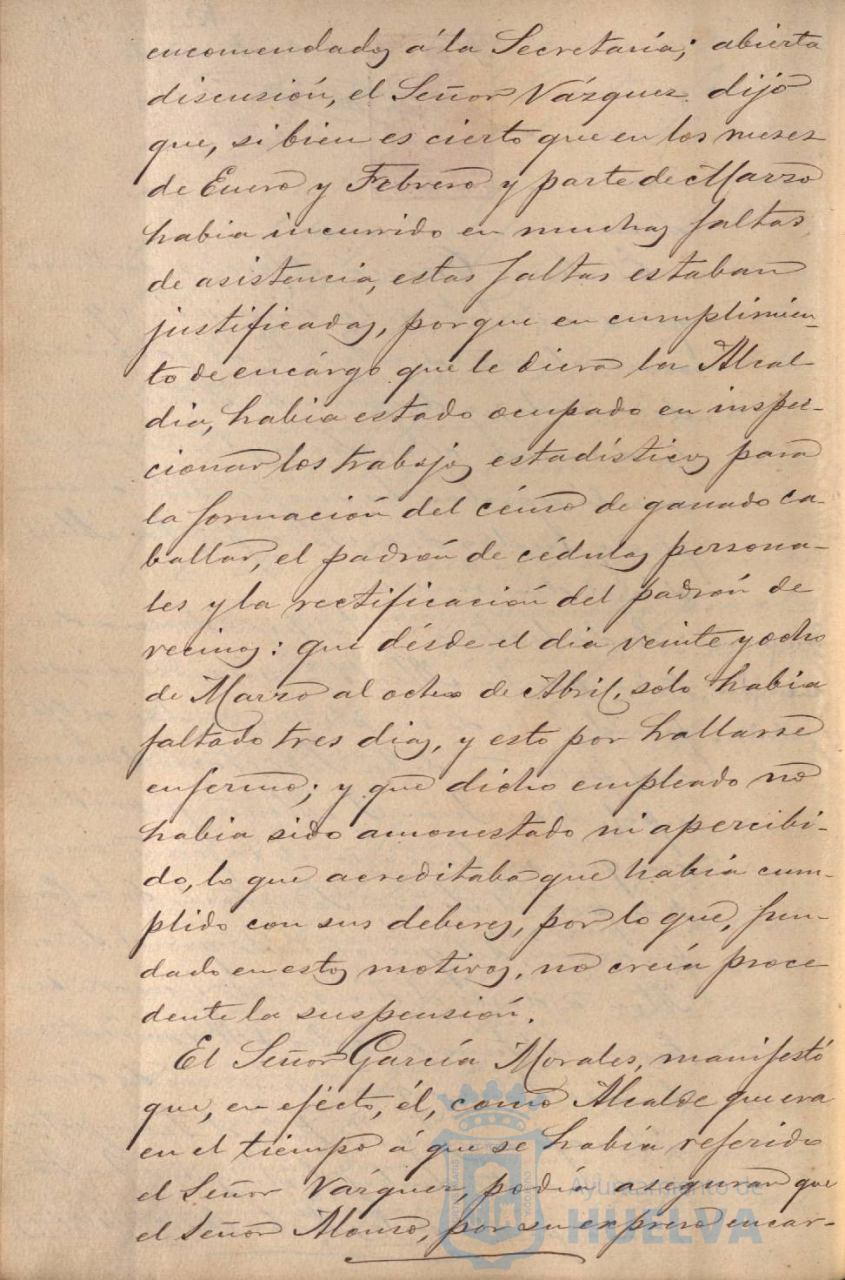 encomendados á la Secretaría; abierta
discusión, el Señor Vázquez dijo
que, si bien es cierto que en los meses
de Enero y Febrero y parte de Marzo
habia incurrido en muchas faltas
de asistencia, estas faltas estaban
justificadas, porque en cumplimien-
to de encárgo que le diera la Alcal-
dia, habia estado ocupado en inspec-
cionar los trabajos estadísticos para
la formación del cénso de ganado ca-
ballar, el padrón de cédulas persona-
les y la rectificación del padrón de
vecinos: que désde el dia veinte y ocho
de Marzo al ocho de Abril, sólo habia
faltado tres dias, y esto por hallarse
enfermo; y que dicho empleado no
habia sido amonestado ni apercibi-
do, lo que acreditaba que habia cum-
plido con sus deberes, por lo que, fun-
dado en estos motivos, no creia proce
dente la suspensión.
El Señor García Morales, manifestó
que, en efécto, él, como Alcalde que era
en el tiempo á que se habia referido
el Señor Vázquez, podía asegurar que
el Señor Alonso, por su expreso encar-
Ayuntamiento de
HUELVA